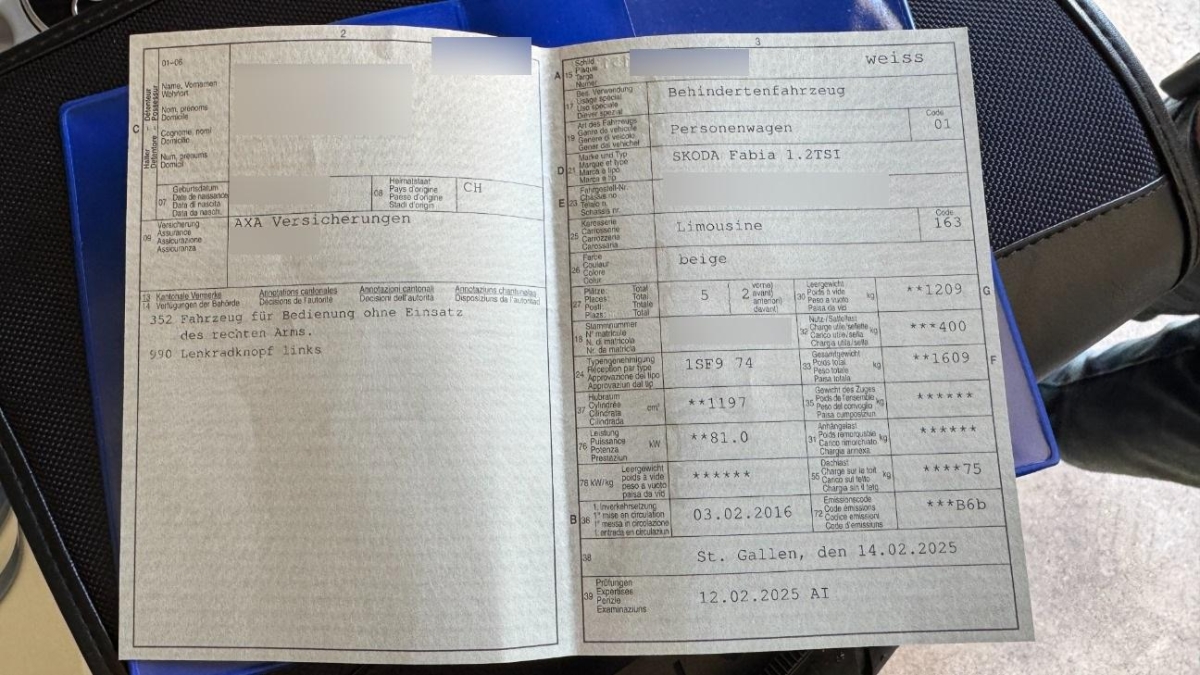 2
01-06
Name, Vornamen
Wohnort
Nom, prénoms
Domicile
Cognome, nomi
Domicilio
Num, prenums
Domicil
C
Halter
Détenteur
Detentore
Possessur
07
Geburtsdatum
Date de naissance
Data di nascita
Data da nasch.
08
Heimatstaat
Pays d'origine
Paese d'origine
Stadi d'origin
CH
09
Versicherung
Assurance
Assicurazione
Assicuranza
AXA Versicherungen
13 Kantonale Vermerke Annotations cantonales Annotazioni cantonali Annotaziuns chantunalas
14 Verfügungen der Behörde Décisions de l'autorité Decisioni dell'autorità Disposiziuns da l'autoritad
352 Fahrzeug für Bedienung ohne Einsatz
des rechten Arms.
990 Lenkradknopf links
3
A 15
Schild
Plaque
Targa
Numer
weiss
17
Bes. Verwendung
Usage spécial
Uso speciale
Diever spezial
Behindertenfahrzeug
19
Art des Fahrzeugs
Genre de véhicule
Genere di veicolo
Gener dal vehichel
Personenwagen
Code
01
D 21
Marke und Typ
Marque et type
Marca e tipo
Marca e tip
SKODA Fabia 1.2TSI
E 23
Fahrgestell-Nr.
Châssis no
Telaio n.
Schassis nr.
25
Karosserie
Carrosserie
Carrozzeria
Carossaria
Limousine
Code
163
26
Farbe
Couleur
Colore
Colur
beige
27
Plätze: Total
Places: Total
Posti: Totale
Plazs: Total
5
2
vorne)
avant)
anteriori)
davant)
30
Leergewicht
Poids à vide
Peso a vuoto
Paisa da vid
kg
**1209
G
18
Stammnummer
N° matricule
N. di matricola
Nr. da matricla
32
Nutz-/Sattellast
Charge utile/sellette
Carico utile/sella
Chargia util/sella
kg
***400
24
Typengenehmigung
Réception par type
Approvazione del tipo
Approvaziun dal tip
1SF9 74
33
Gesamtgewicht
Poids total
Peso totale
Paisa totala
kg
**1609
F
37
Hubraum
Cylindrée
Cilindrata
Cilindrada
cm³
**1197
35
Gewicht des Zuges
Poids de l'ensemble
Peso del convoglio
Paisa cumposiziun
kg
******
76
Leistung
Puissance
Potenza
Prestaziun
kW
**81.0
31
Anhängelast
Poids remorquable
Carico rimorchiato
Chargia annexa
kg
******
78 kW/kg
Leergewicht
poids à vide
peso a vuoto
paisa da vid
******
55
Dachlast
Charge sur le toit
Carico sul tetto
Chargia sin il tetg
kg
****75
B 36
1. Inverkehrsetzung
1re mise en circulation
1a messa in circolazione
1. entrada en circulaziun
03.02.2016
72
Emissionscode
Code émissions
Codice emissioni
Code d'emissiuns
***B6b
38
St. Gallen, den 14.02.2025
39
Prüfungen
Expertises
Perizie
Examinaziuns
12.02.2025 AI